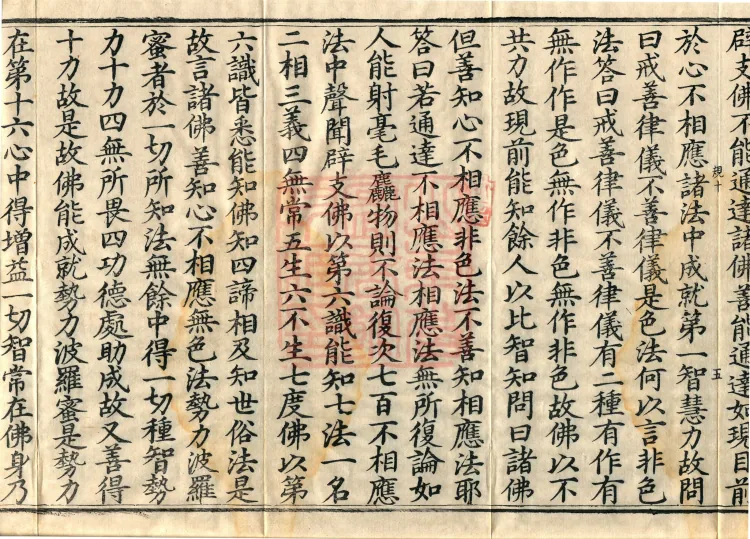 辟支佛不能通達諸佛善能通達如現目前
於心不相應諸法中成就第一智慧力故問
曰戒善律儀不善律儀是色法何以言非色
法答曰戒善律儀不善律儀有二種有作有
無作作是色無作非色無作非色故佛以不
共力故現前能知餘人以比智知問曰諸佛
但善知心不相應非色法不善知相應法耶
答曰若通達不相應法相應法無所復論如
人能射毫毛麤物則不論復次七百不相應
法中聲聞辟支佛以第六識能知七法一名
二相三義四無常五生六不生七度佛以第
六識皆悉能知佛知四諦相及知世俗法是
故言諸佛善知心不相應無色法勢力波羅
蜜者於一切所知法無餘中得一切種智勢
力十力四無所畏四功德處助成故又善得
十力故是故佛能成就勢力波羅蜜是勢力
在第十六心中得增益一切智常在佛身乃